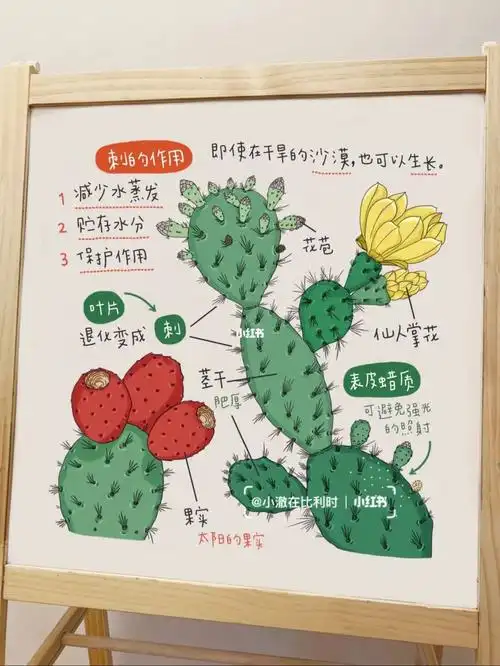 刺的作用
即使在干旱的沙漠,也可以生长。
1 减少水蒸发
2 贮存水分
3 保护作用
花苞
叶片
退化变成
刺
小红书
仙人掌花
茎干
肥厚
表皮蜡质
可避免强光
的照射
@小澈在比利时 | 小红书
果实
太阳的果实